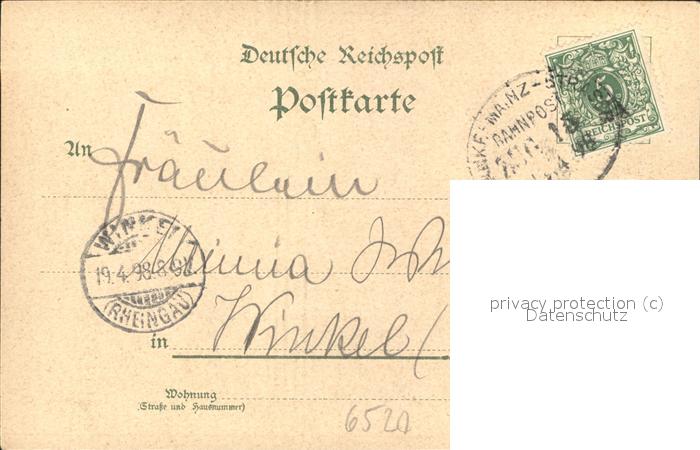 Deutsche Reichspost
Postkarte
5
REICHSPOST
MAINZ
BAHNPOST
An
Fräulein
WINKEL
19.4.98.8-9V.
(RHEINGAU)
Minna
in Winkel (
privacy protection (c)
Datenschutz
Wohnung
(Straße und Hausnummer)